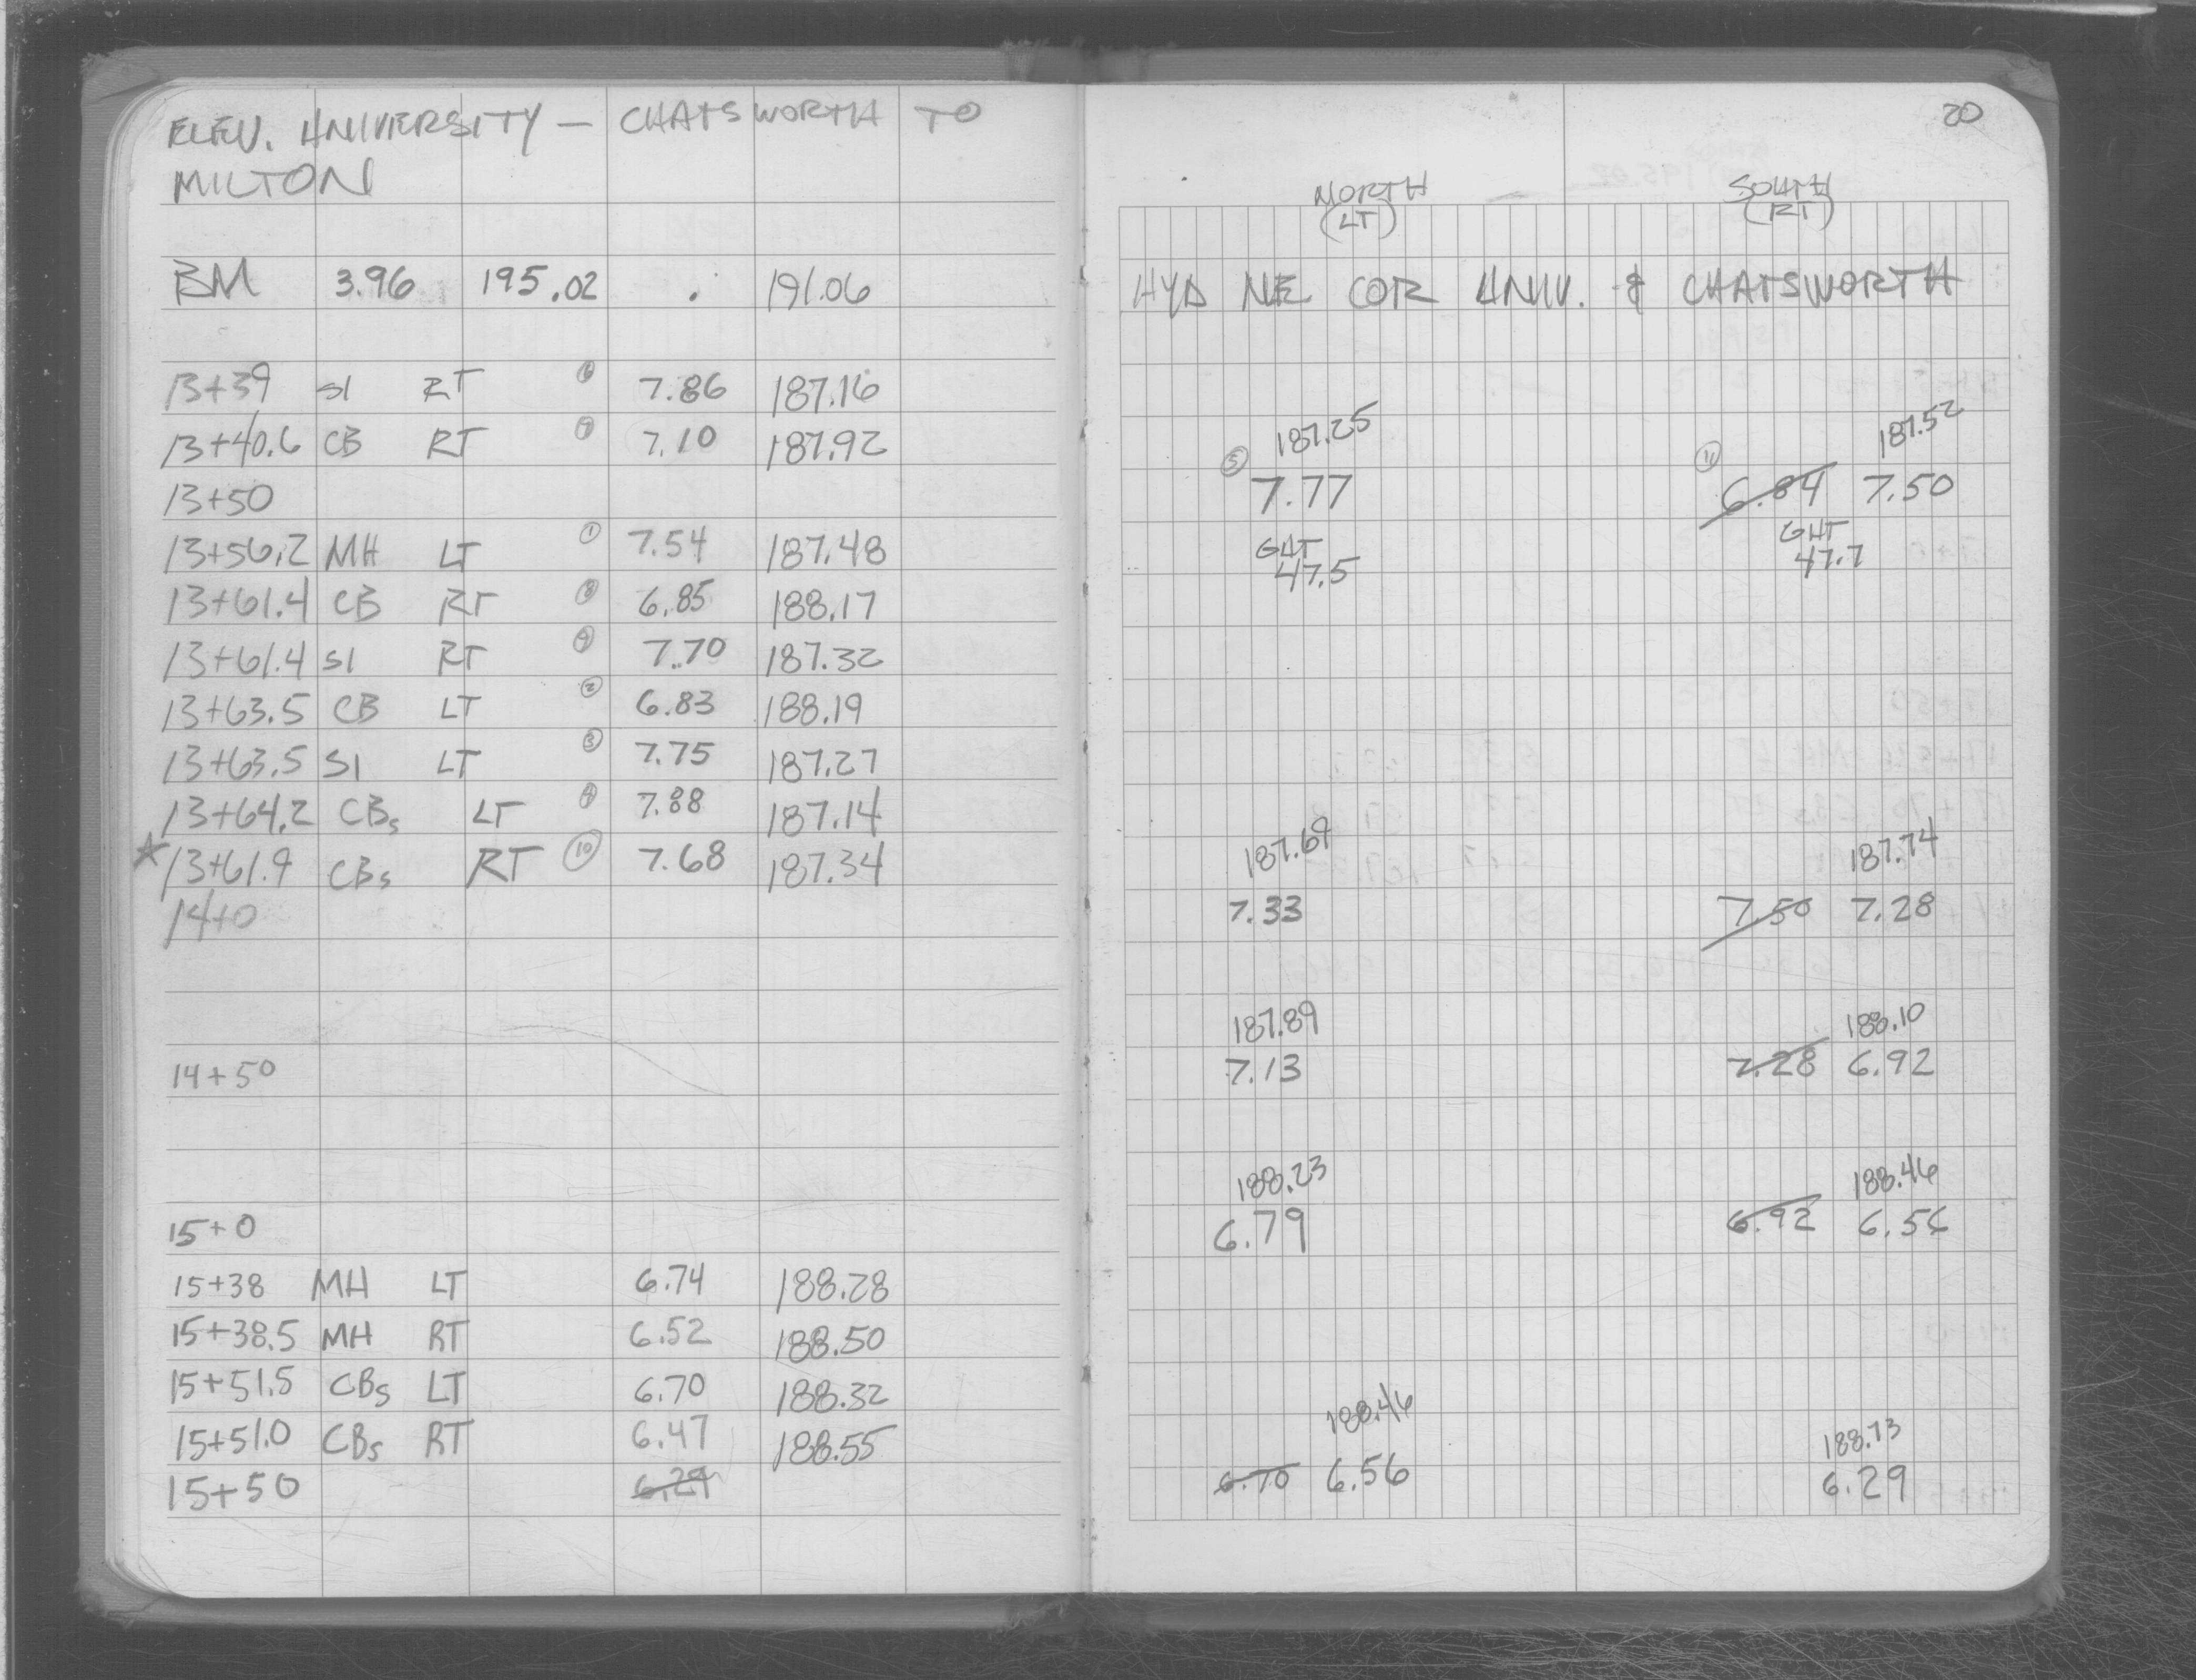 ELEV. UNIVERSITY — CHATSWORTH TO
MILTON
BM 3.96 195.02 . 191.06
13+39 SI RT ⑥ 7.86 187.16
13+40.6 CB RT ⑦ 7.10 187.92
13+50
13+56.2 MH LT ① 7.54 187.48
13+61.4 CB RT ⑧ 6.85 188.17
13+61.4 SI RT ⑨ 7.70 187.32
13+63.5 CB LT ② 6.83 188.19
13+63.5 SI LT ③ 7.75 187.27
13+64.2 CBs LT ④ 7.88 187.14
★ 13+61.9 CBs RT ⑩ 7.68 187.34
14+0
14+50
15+0
15+38 MH LT 6.74 188.28
15+38.5 MH RT 6.52 188.50
15+51.5 CBs LT 6.70 188.32
15+51.0 CBs RT 6.47 188.55
15+50 6.29
20
NORTH SOUTH
(LT) (RT)
HYD NE COR UNIV. & CHATSWORTH
187.25 187.52
⑤ 7.77 ⑪ 6.84 7.50
GUT GUT
47.5 47.7
187.69 187.74
7.33 7.50 7.28
187.89 188.10
7.13 7.28 6.92
188.23 188.46
6.79 6.92 6.56
188.46 188.73
6.70 6.56 6.29